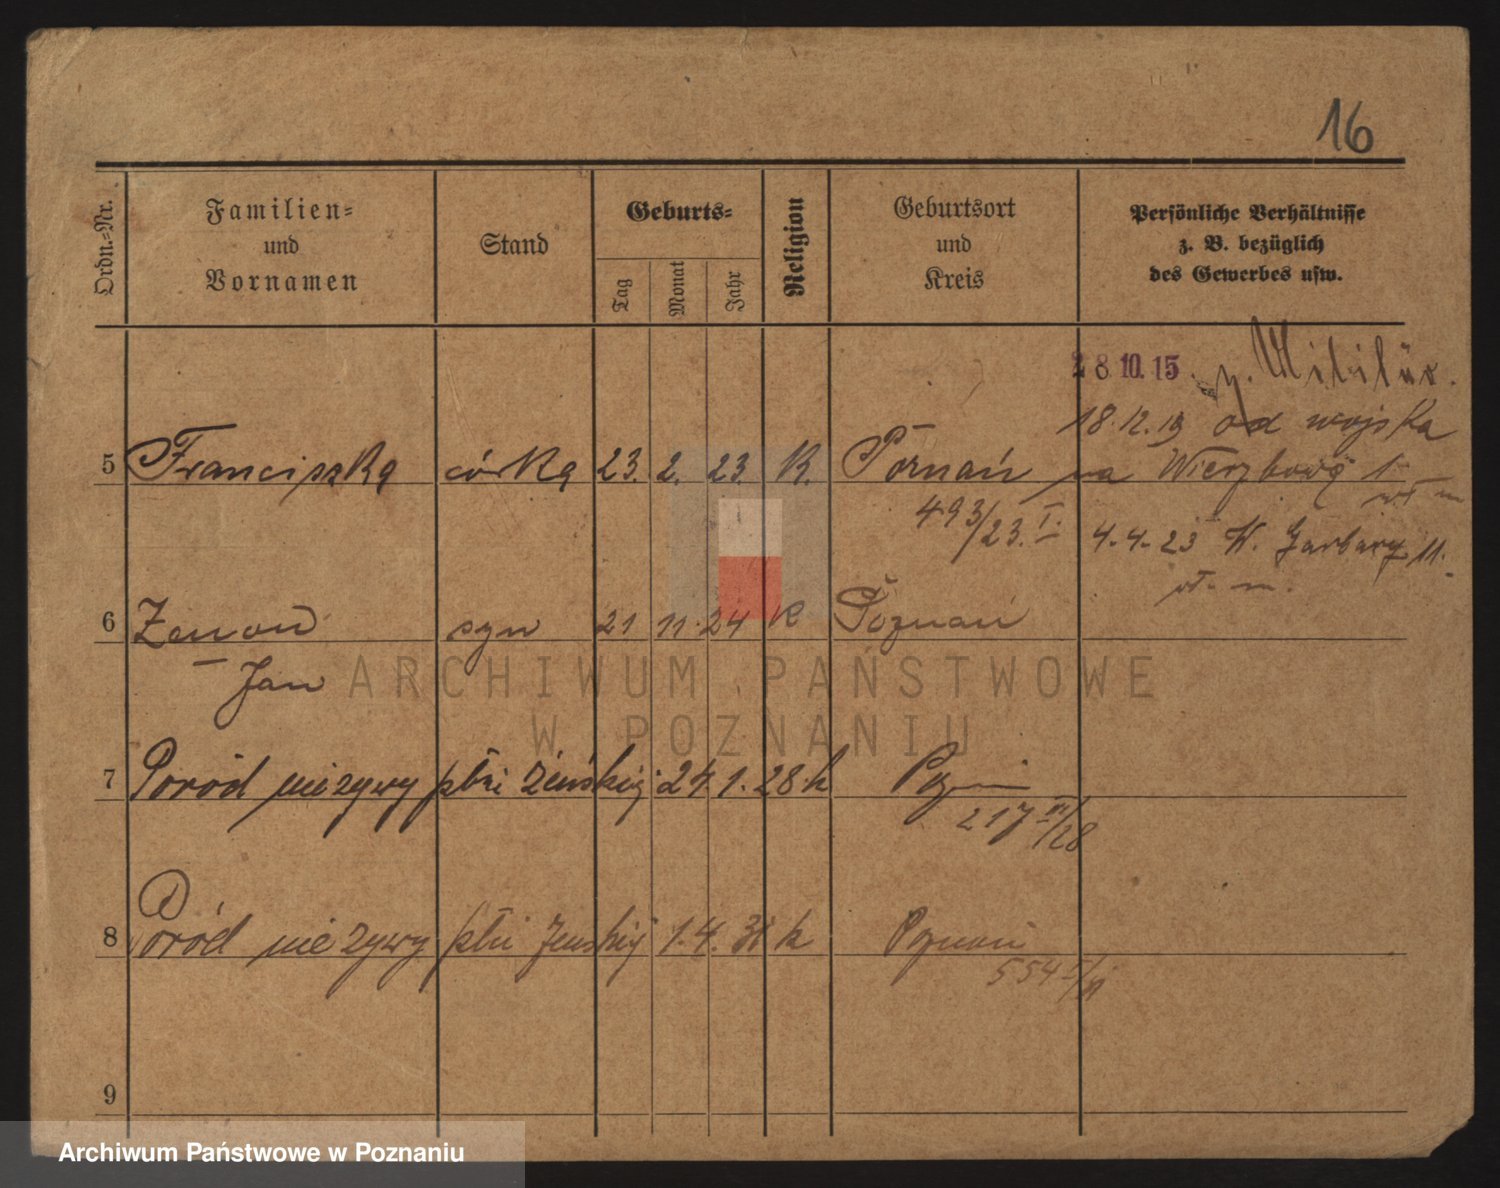 16
Ordn.-Nr.
Familien-
und
Vornamen
Stand
Geburts-
Tag
Monat
Jahr
Religion
Geburtsort
und
Kreis
Persönliche Verhältnisse
z. B. bezüglich
des Gewerbes usw.
28.10.15. z. Militär.
18.12.19 od wojska
5 Franciszka córka 23. 2. 23. K. Poznań na Wierzbową 1
493/23. I. 4.4.23 W. Garbary 11.
6 Zenon syn 21 11. 24 K Poznań
Jan
ARCHIWUM PAŃSTWOWE
W POZNANIU
7 Poród nieżywy płci żeńskiej 24 1. 28 k Poznań
217 VI/28
8 Poród nieżywy płci żeńskiej 1. 4. 31 k Poznań
554
9
Archiwum Państwowe w Poznaniu